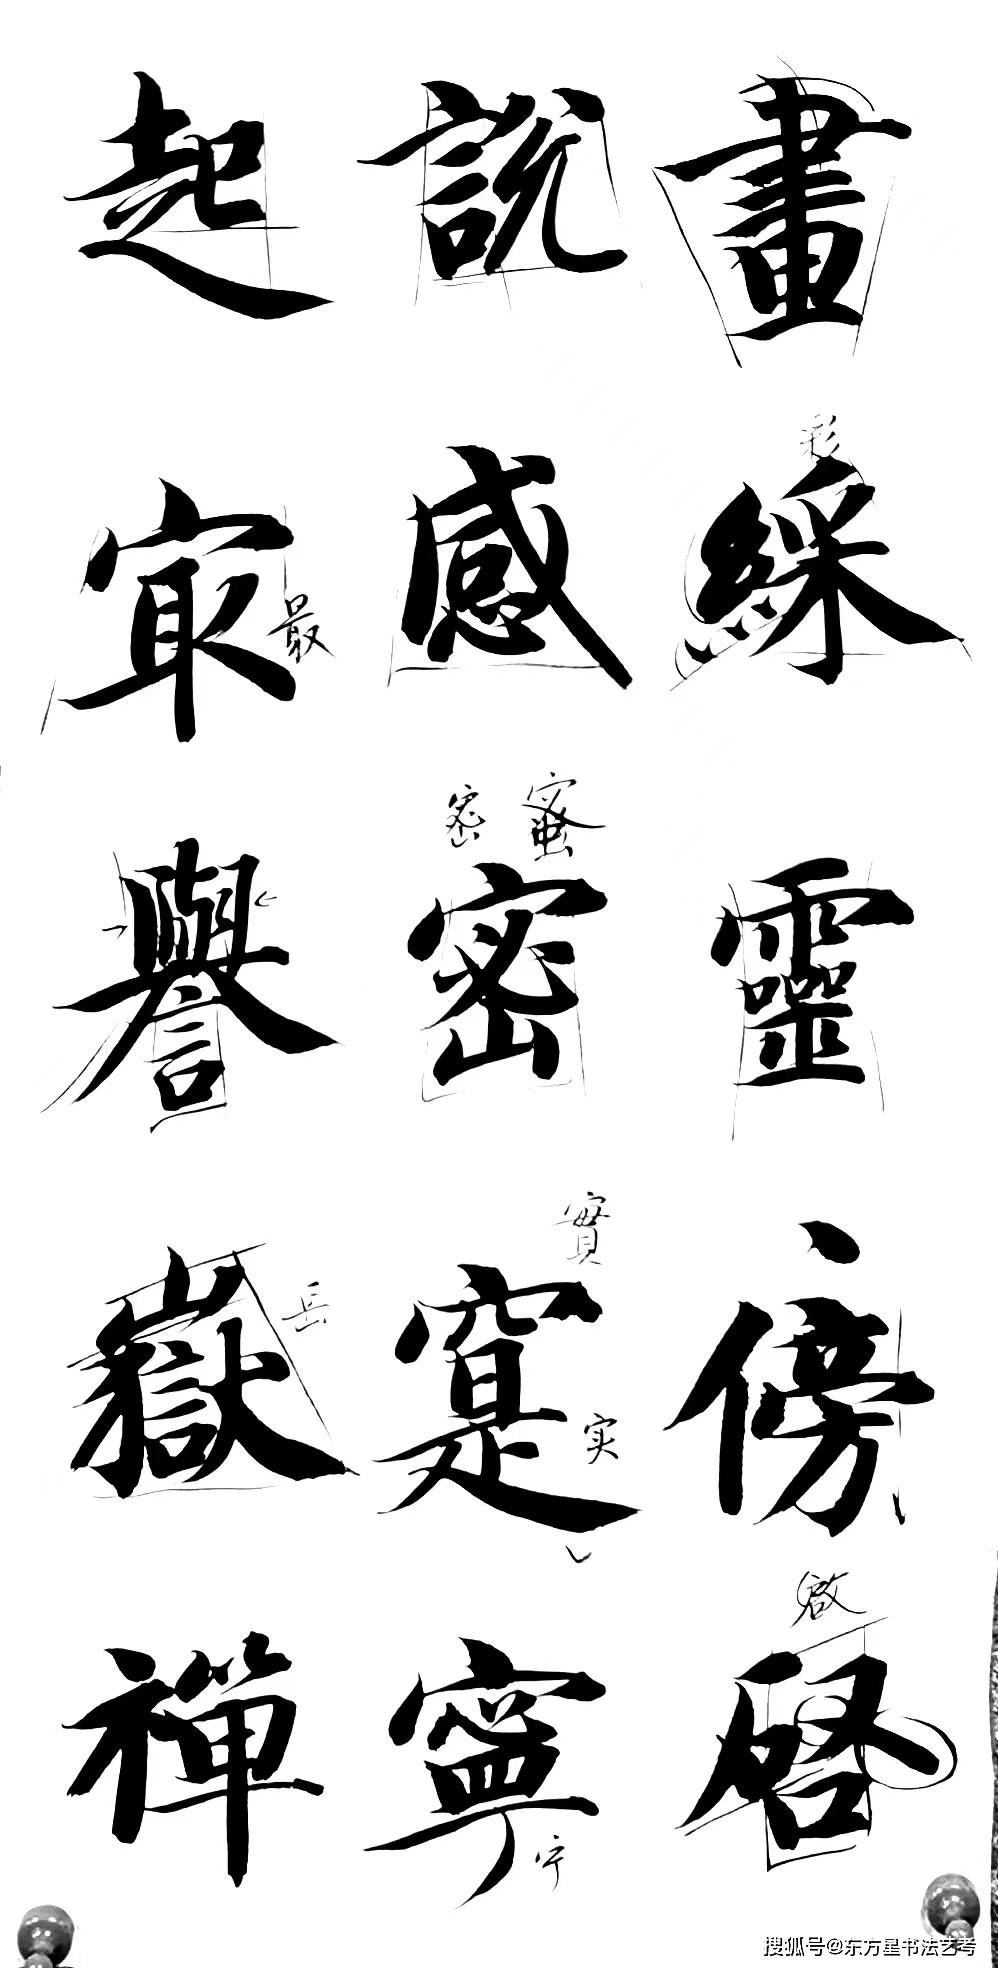 畫綵靈傍啓
彩
啟
說感密寔寧
密 蜜
實
实
宁
起㝡譽嶽禪
最
岳
搜狐号@东方星书法艺考